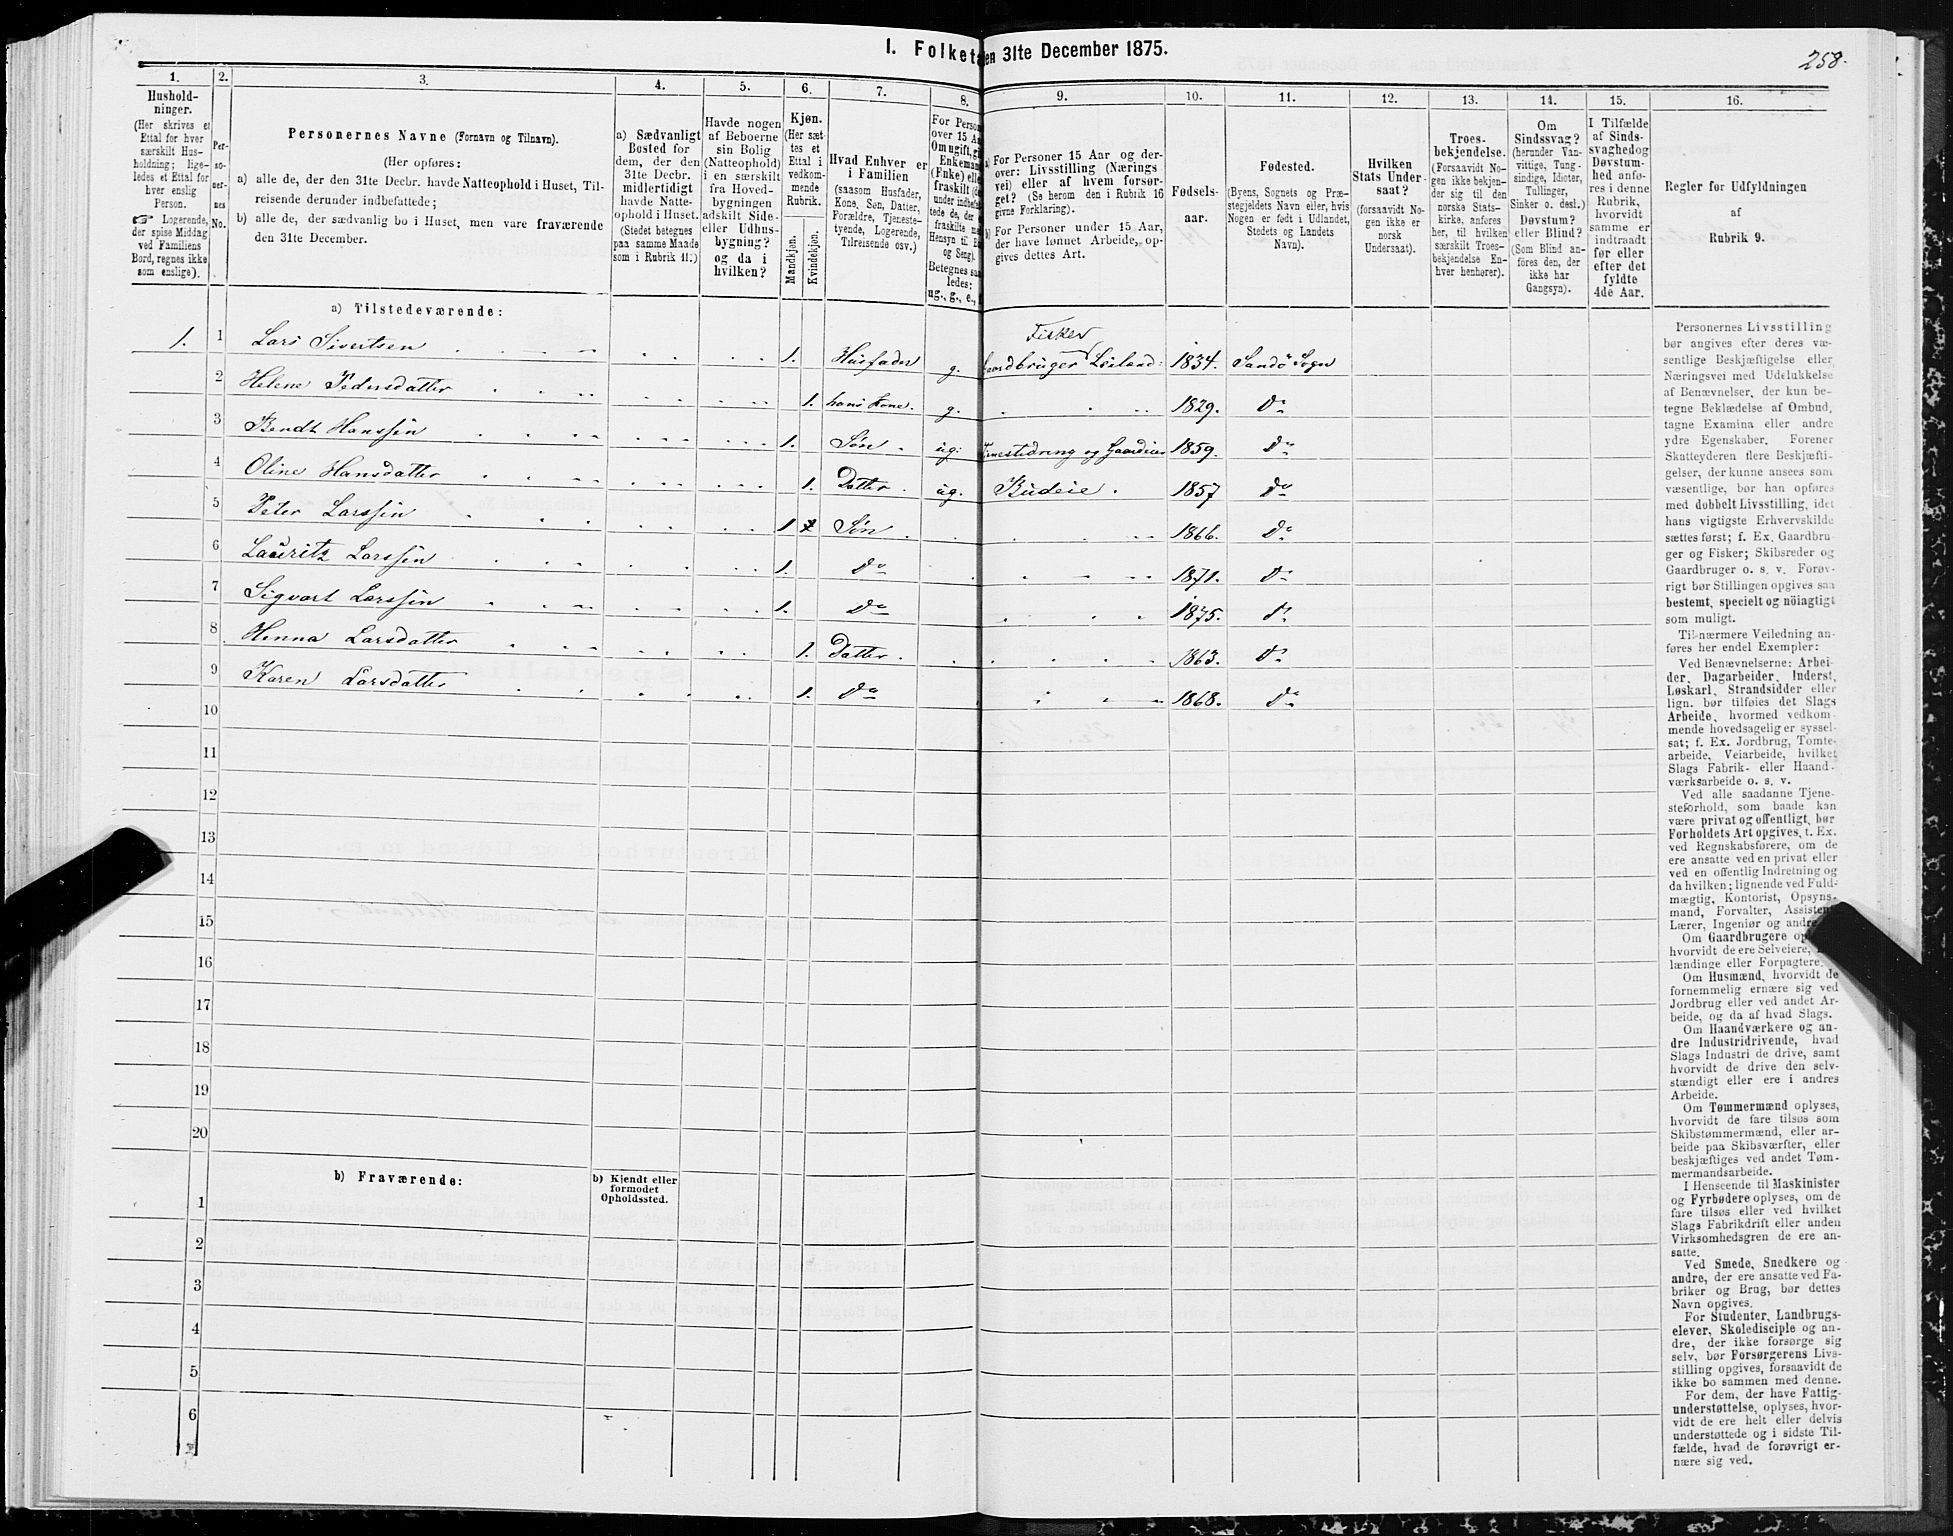 1. Folketæ en 31te December 1875.
258.
1.
2.
3.
4.
5.
6.
7.
8.
9.
10.
11.
12.
13.
14.
15.
16.
Hushold-
ninger.
(Her skrives et
Ettal for hver
særskilt Hus-
holdning; lige-
ledes et Ettal for
hver enslig
Person.
☞ Logerende,
der spise Middag
ved Familiens
Bord, regnes ikke
som enslige).
Per-
so-
ner-
nes
No.
Personernes Navne (Fornavn og Tilnavn).
(Her opføres:
a) alle de, der den 31te Decbr. havde Natteophold i Huset, Til-
reisende derunder indbefattede;
b) alle de, der sædvanlig bo i Huset, men vare fraværende
den 31te December.
a) Sædvanligt
Bosted for
dem, der den
31te Decbr.
midlertidigt
havde Natte-
ophold i Huset.
(Stedet betegnes
paa samme Maade
som i Rubrik 11.)
Havde nogen
af Beboerne
sin Bolig
(Natteophold)
i en særskilt
fra Hoved-
bygningen
adskilt Side-
eller Udhus-
bygning?
og da i
hvilken?
Kjøn.
(Her sæt-
tes et
Ettal i
vedkom-
mende
Rubrik.
Mandkjøn.
Kvindekjøn.
Hvad Enhver er
i Familien
(saasom Husfader,
Kone, Søn, Datter,
Forældre, Tjeneste-
tyende, Logerende,
Tilreisende osv.)
For Person
over 15 Aa
Om ugift, gi
Enkemand
(Enke) elle
fraskilt (de
under indbefat
tede de, der
fraskilte me
Hensyn til B
og Seng).
Betegnes saa
ledes:
ug., g., e., f
a) For Personer 15 Aar og der-
over: Livsstilling (Nærings
vei) eller af hvem forsør-
get? (Se herom den i Rubrik 16
givne Forklaring).
b) For Personer under 15 Aar,
der have lønnet Arbeide, op-
gives dettes Art.
Fødsels-
aar.
Fødested.
(Byens, Sognets og Præ-
stegjeldets Navn eller, hvis
Nogen er født i Udlandet,
Stedets og Landets
Navn).
Hvilken
Stats Under-
saat?
(forsaavidt No-
gen ikke er
norsk
Undersaat).
Troes-
bekjendelse.
(Forsaavidt No-
gen ikke bekjen-
der sig til den
norske Stats-
kirke, anføres
her, til hvilken
særskilt Troes-
bekjendelse En-
hver henhører).
Om
Sindssvag?
(herunder Van-
vittige, Tung-
sindige, Idioter,
Tullinger,
Sinker o. desl.)
Døvstum?
eller Blind?
(Som Blind an-
føres den, der
ikke har
Gangsyn).
I Tilfælde
af Sinds-
svaghedog
Døvstum-
hed anfø-
res i denne
Rubrik,
hvorvidt
samme er
indtraadt
før eller
efter det
fyldte
4de Aar.
Regler for Udfyldningen
af
Rubrik 9.
a) Tilstedeværende:
1. 1 Lars Sivertsen 1. Husfader g. Fisker Gaardbruger Leiland: 1834. Sandö Sogn
2 Helene Pedersdatter 1. hans Kone. g. 1829. Do
3 Bendt Hanssen 1. Søn ug. 1859. Do
4 Oline Hansdatter 1. Datter ug. Budeie 1857 Do
5 Peter Larssen 1 Søn 1866. Do
6 Lauritz Larssen 1. Do 1871. Do
7 Sigvart Larssen 1. Do 1875. Do
8 Henna Larsdatter 1. Datter 1863. Do
9 Karen Larsdatter 1. Do 1868. Do
10
11
12
13
14
15
16
17
18
19
20
b) Fraværende:
b) Kjendt eller
formodet
Opholdssted.
1
2
3
4
5
6
Personernes Livsstilling
bør angives efter deres væ-
sentlige Beskjæftigelse eller
Næringsvei med Udelukkelse
af Benævnelser, der kun be-
tegne Beklædelse af Ombud,
tagne Examina eller andre
ydre Egenskaber. Forener
Skatteyderen flere Beskjæfti-
gelser, der kunne ansees som
væsentlige, bør han opføres
med dobbelt Livsstilling, idet
hans vigtigste Erhvervskilde
sættes først; f. Ex. Gaardbru-
ger og Fisker; Skibsreder og
Gaardbruger o. s. v. Forøv-
rigt bør Stillingen opgives saa
bestemt, specielt og nöiagtigt
som muligt.
Til nærmere Veiledning an-
føres her endel Exempler:
Ved Benævnelserne: Arbei-
der, Dagarbeider, Inderst,
Løskarl, Strandsidder eller
lign. bør tilføies det Slags
Arbeide, hvormed vedkom-
mende hovedsagelig er syssel-
sat; f. Ex. Jordbrug, Tomte-
arbeide, Veiarbeide, hvilket
Slags Fabrik- eller Haand-
værksarbeide o. s. v.
Ved alle saadanne Tjene-
steforhold, som baade kan
være privat og offentligt, bør
Forholdets Art opgives, t. Ex.
ved Regnskabsførere, om de
ere ansatte ved en privat eller
ved en offentlig Indretning og
da hvilken; lignende ved Fuld-
mægtig, Kontorist, Opsyns-
mand, Forvalter, Assistent
Lærer, Ingeniør og andre
Om Gaardbrugere op
hvorvidt de ere Selveiere,
lændinge eller Forpagtere.
Om Husmænd, hvorvidt de
fornemmelig ernære sig ved
Jordbrug eller ved andet Ar-
beide, og da af hvad Slags.
Om Haandværkere og an-
dre Industridrivende, hvad
Slags Industri de drive, samt
hvorvidt de drive den selv-
stændigt eller ere i andres
Arbeide.
Om Tømmermænd oplyses,
hvorvidt de fare tilsøs som
Skibstømmermænd, eller ar-
beide paa Skibsværfter, eller
beskjæftiges ved andet Tøm-
mermandsarbeide.
I Henseende til Maskinister
og Fyrbødere oplyses, om de
fare tilsøs eller ved hvilket
Slags Fabrikdrift eller anden
Virksomhedsgren de ere an-
satte.
Ved Smede, Snedkere og
andre, der ere ansatte ved Fa-
briker og Brug, bør dettes
Navn opgives.
For Studenter, Landbrugs-
elever, Skoledisciple og an-
dre, der ikke forsørge sig
selv, bør Forsørgerens Livs-
stilling opgives, forsaavidt de
ikke bo sammen med denne.
For dem, der have Fattig-
understøttelse, oplyses, hvor-
vidt de ere helt eller delvis
understøttede og i sidste Til-
fælde, hvad de forøvrigt er-
nære sig ved.